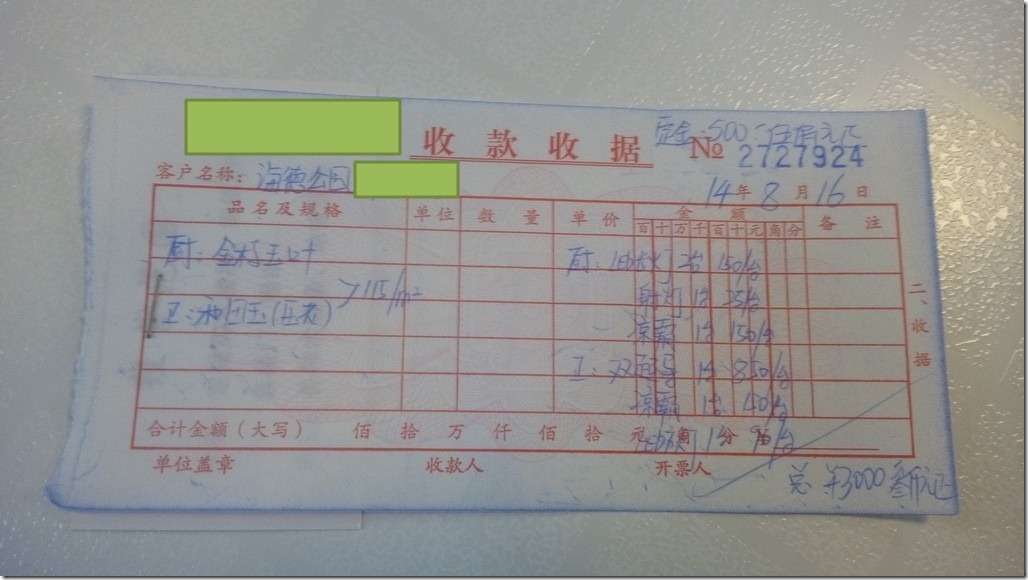 收款收据
定金:500 伍佰元正
№ 2727924
客户名称: 海德公园
14年8月16日
品名及规格 单位 数量 单价 金额 备注
百十万千百十元角分
厨: 金 玉叶
厨: 灯 2台 150/台
>115/m²
射灯 1台 25/台
卫:
凉霸 1台 150/台
卫: 双 1台 850/台
凉霸 1台 40/台
二、收据
合计金额(大写) 佰 拾 万 仟 佰 拾 元 角 分
单位盖章 收款人 开票人
总 ¥3000 叁仟元正